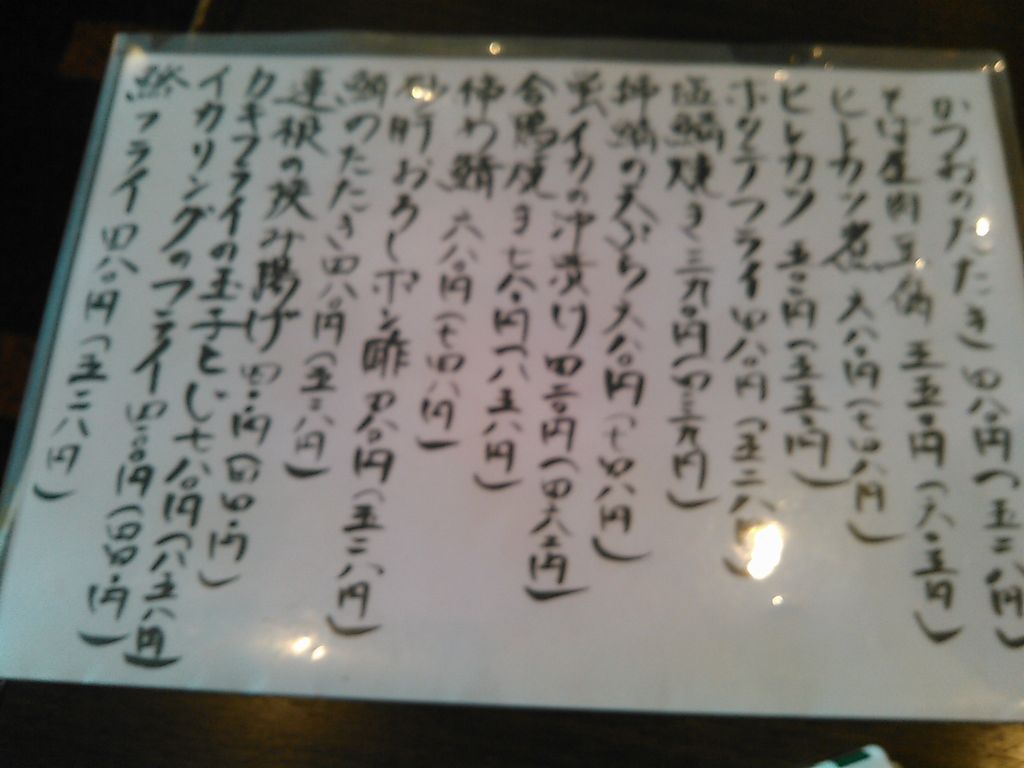 かつおのたたき 四八〇円(五二八円)
五五〇円(六〇五円)
ヒレカツ煮 六八〇円(七四八円)
ヒレカツ 五〇〇円(五五〇円)
ホタテフライ 四八〇円(五二八円)
塩鯖焼き 三九〇円(四二九円)
の天ぷら 六八〇円(七四八円)
蛍イカの沖漬け 四二〇円(四六二円)
合鴨焼き 七八〇円(八五八円)
鯖 六八〇円(七四八円)
砂肝おろしポン酢 四八〇円(五二八円)
鯵のたたき 四八〇円(五二八円)
蓮根の挟み揚げ 四〇〇円(四四〇円)
カキフライの玉子とじ 七八〇円(八五八円)
イカリングのフライ 四〇〇円(四四〇円)
フライ 四八〇円(五二八円)